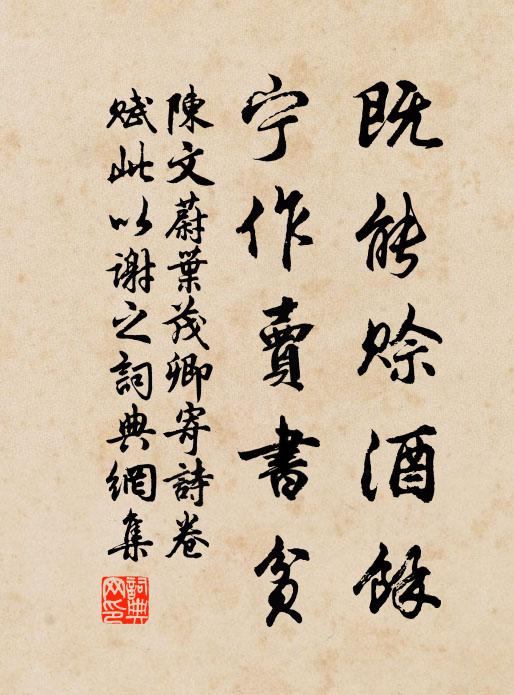 既能赊酒餘
宁作賣書貧
陳文蔚葉茂卿寄詩卷
賦此以謝之詞典網集
詞典
网印